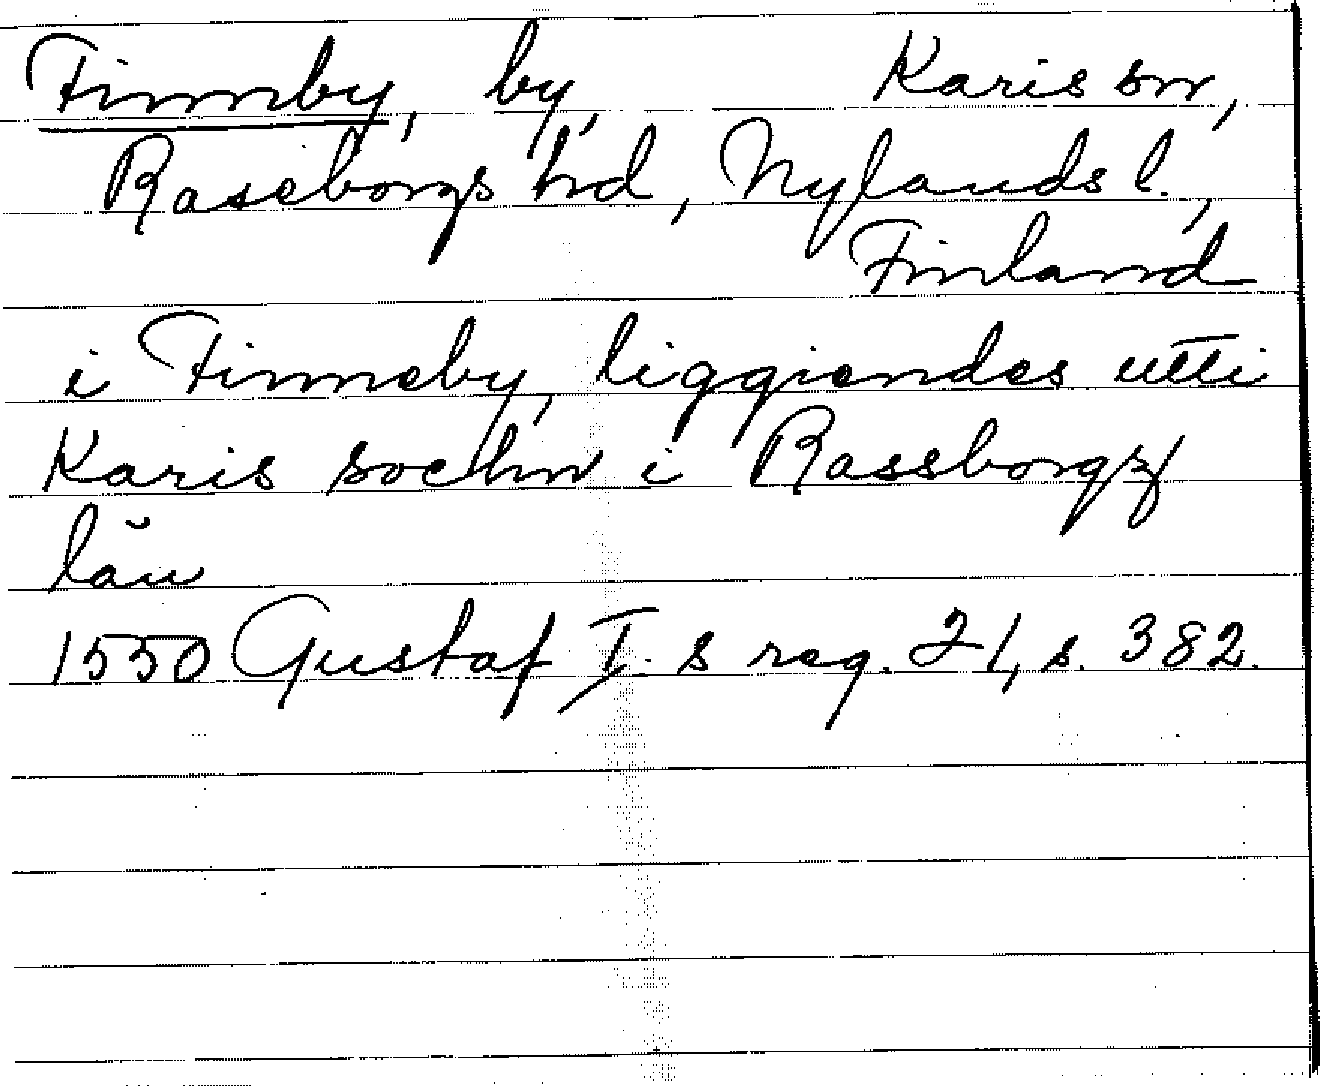 Finnby, by, Karis sn,
Raseborgs hd, Nylands l.,
Finland
i Finneby, liggiendes utti
Karis sochn i Rassborgz
län
1550 Gustaf I.s reg. 21, s. 382.